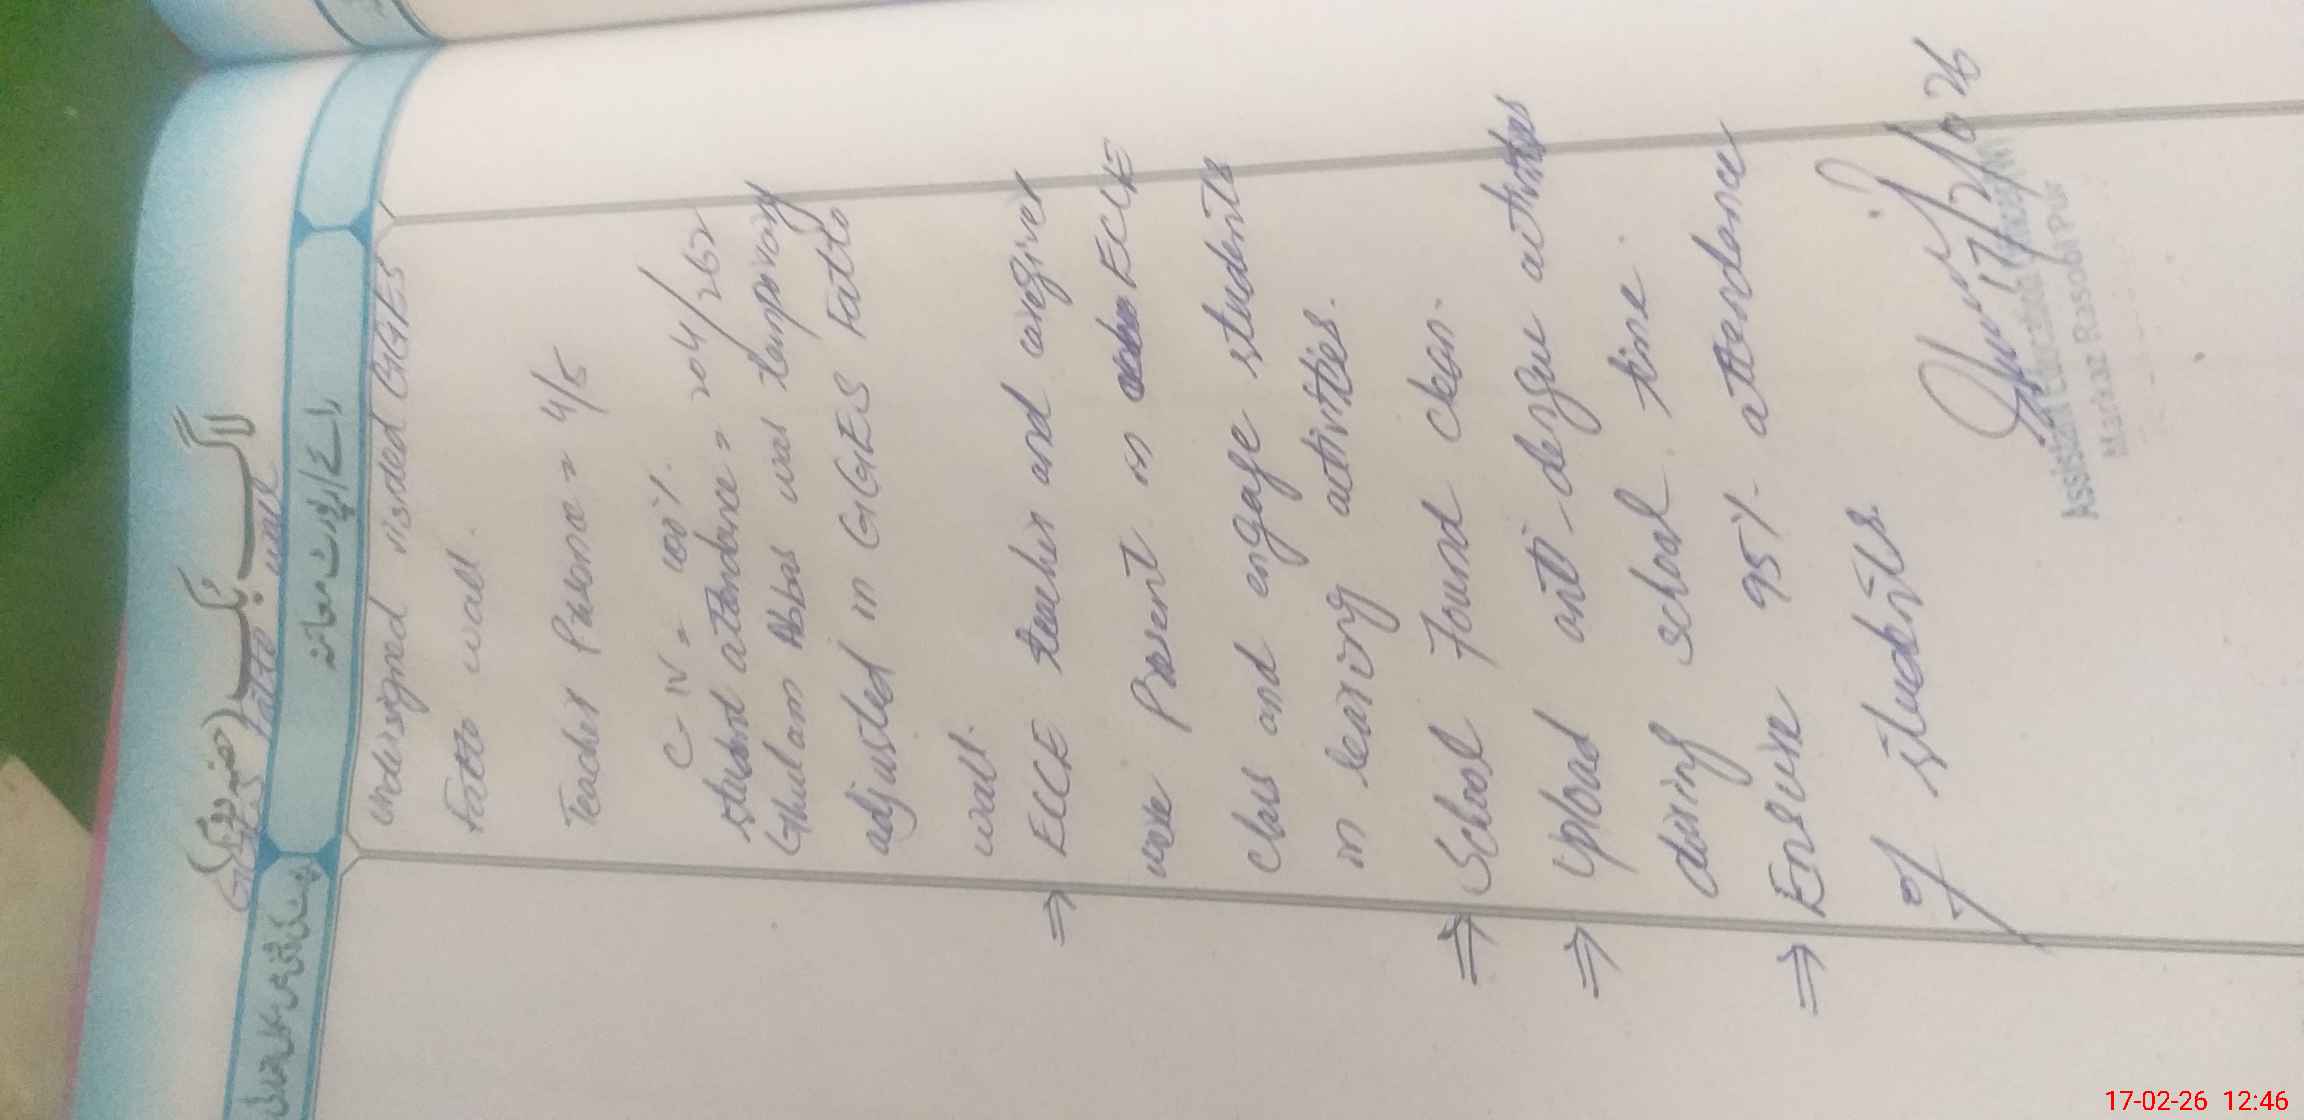 لاگ بک
GGES Fatto wali
رائے/رپورٹ معائنہ
undersigned visited GGES
Fatto wali.
Teacher Presence = 4/5
C-IV = 100%.
student attendance = 204/262
Ghulam Abbas was temporary
adjusted in GGES Fatto
wali.
⇒ ECCE teacher and caregiver
were Present in ECCE
class and engage students
in learing activities.
⇒ School Found clean.
⇒ Upload anti-dengue activities
during school time.
⇒ Ensure 95% attendance
of students.
17/2/026
Assistant Education
Markaz Rasool Pur
17-02-26 12:46